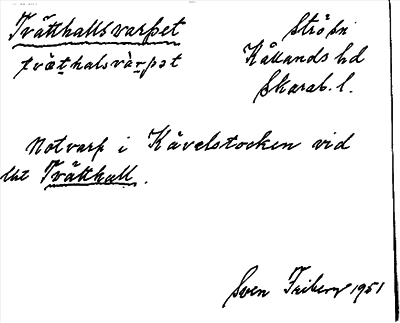 Tvätthallsvarpet
tvæthalsvàrpət
Ströbn
Kållands hd
Skarab. l.
Notvarp i Kåvelstocken vid
lht Tvätthall.
Sven Friberg 1951